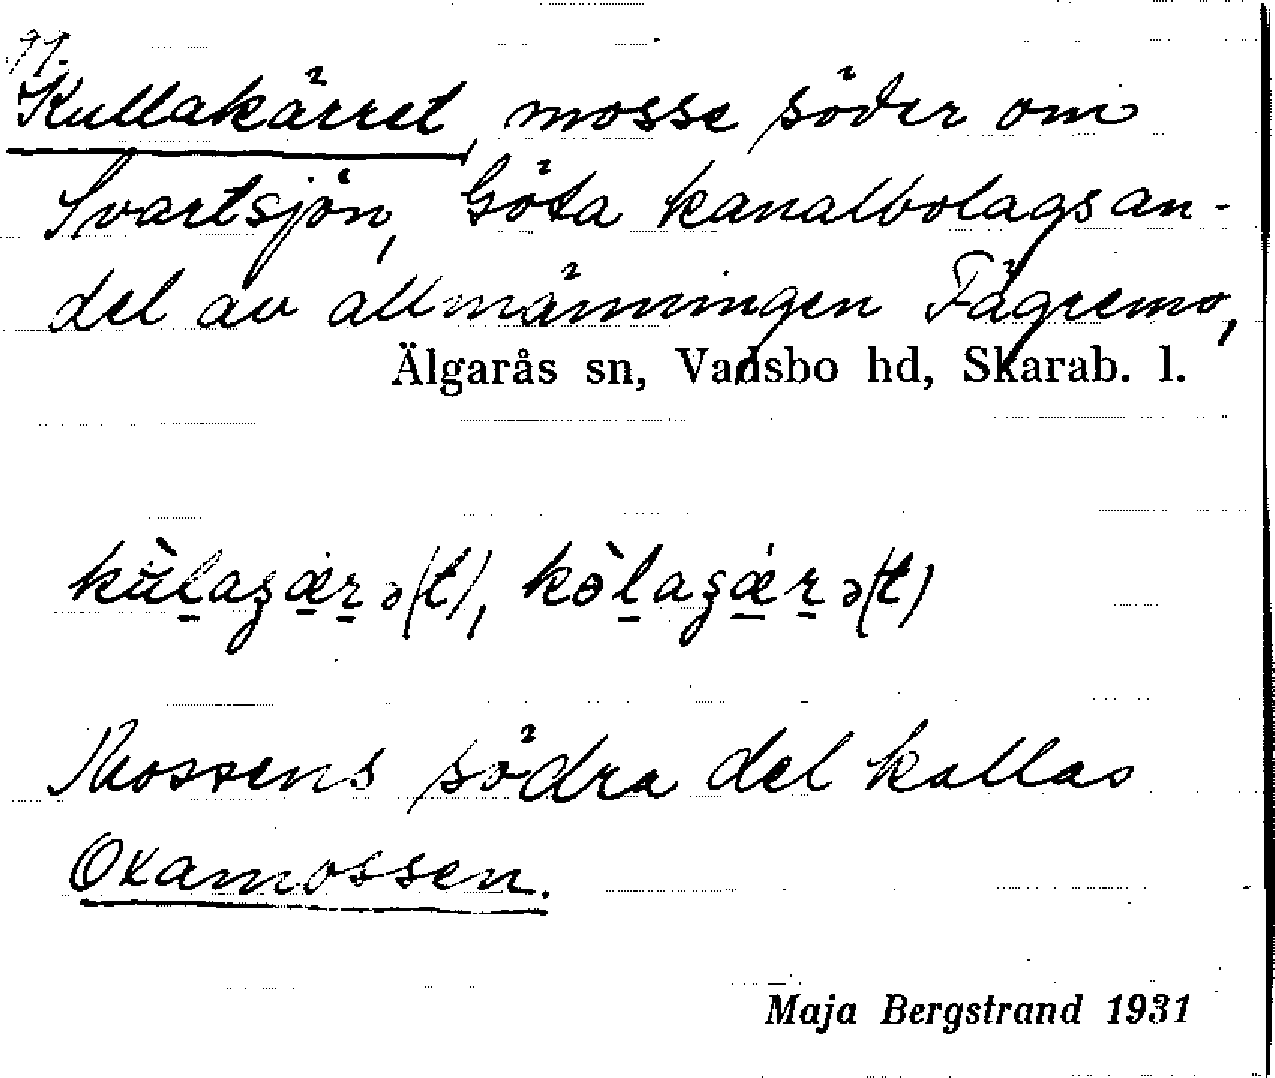 91.
Kullakärret, mosse söder om
Svartsjön, Göta kanalbolagsan-
del av allmänningen Fägremo,
Älgarås sn, Vadsbo hd, Skarab. l.
kùlaʒærə(t), kòlaʒærə(t)
Mossens södra del kallas
Oxamossen.
Maja Bergstrand 1931